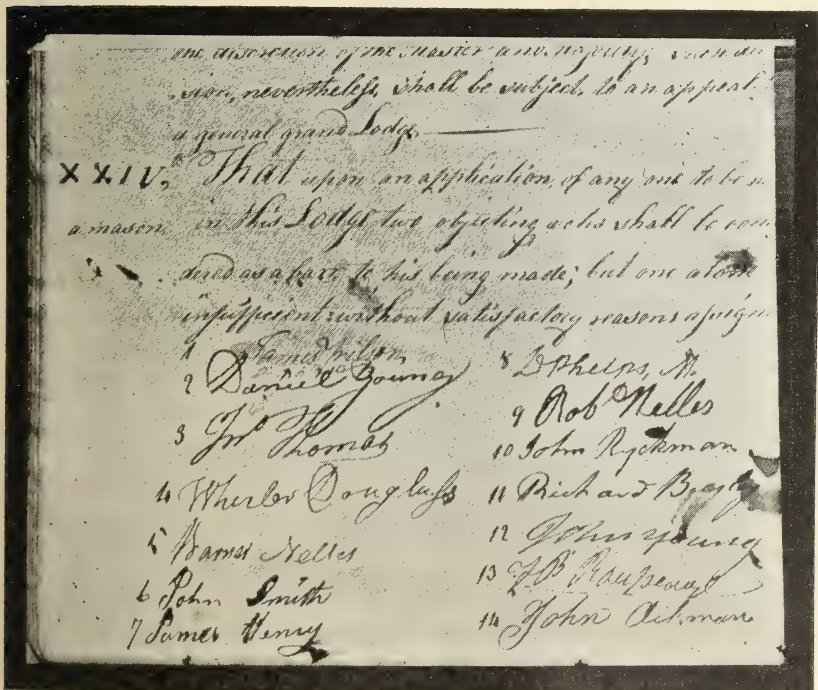 the discretion of the Master and majority, such
sion, nevertheless, shall be subject, to an appeal
a general grand Lodge.
XXIV, That upon an application, of any one to be
a mason in this Lodge two objecting shall to con
dered as a barr to his being made; but one alone
insufficient without satisfactory reasons assign
1 James Wilson
2 Daniel Young
3 Jno Thomas
4 Wheeler Douglass
5 Warner Nelles
6 John Smith
7 James Henry
8 D Phelps,
9 Robt Nelles
10 John Ryckman
11 Richard Beasley
12 John Young
13 J B Rousseaux
14 John Aikman